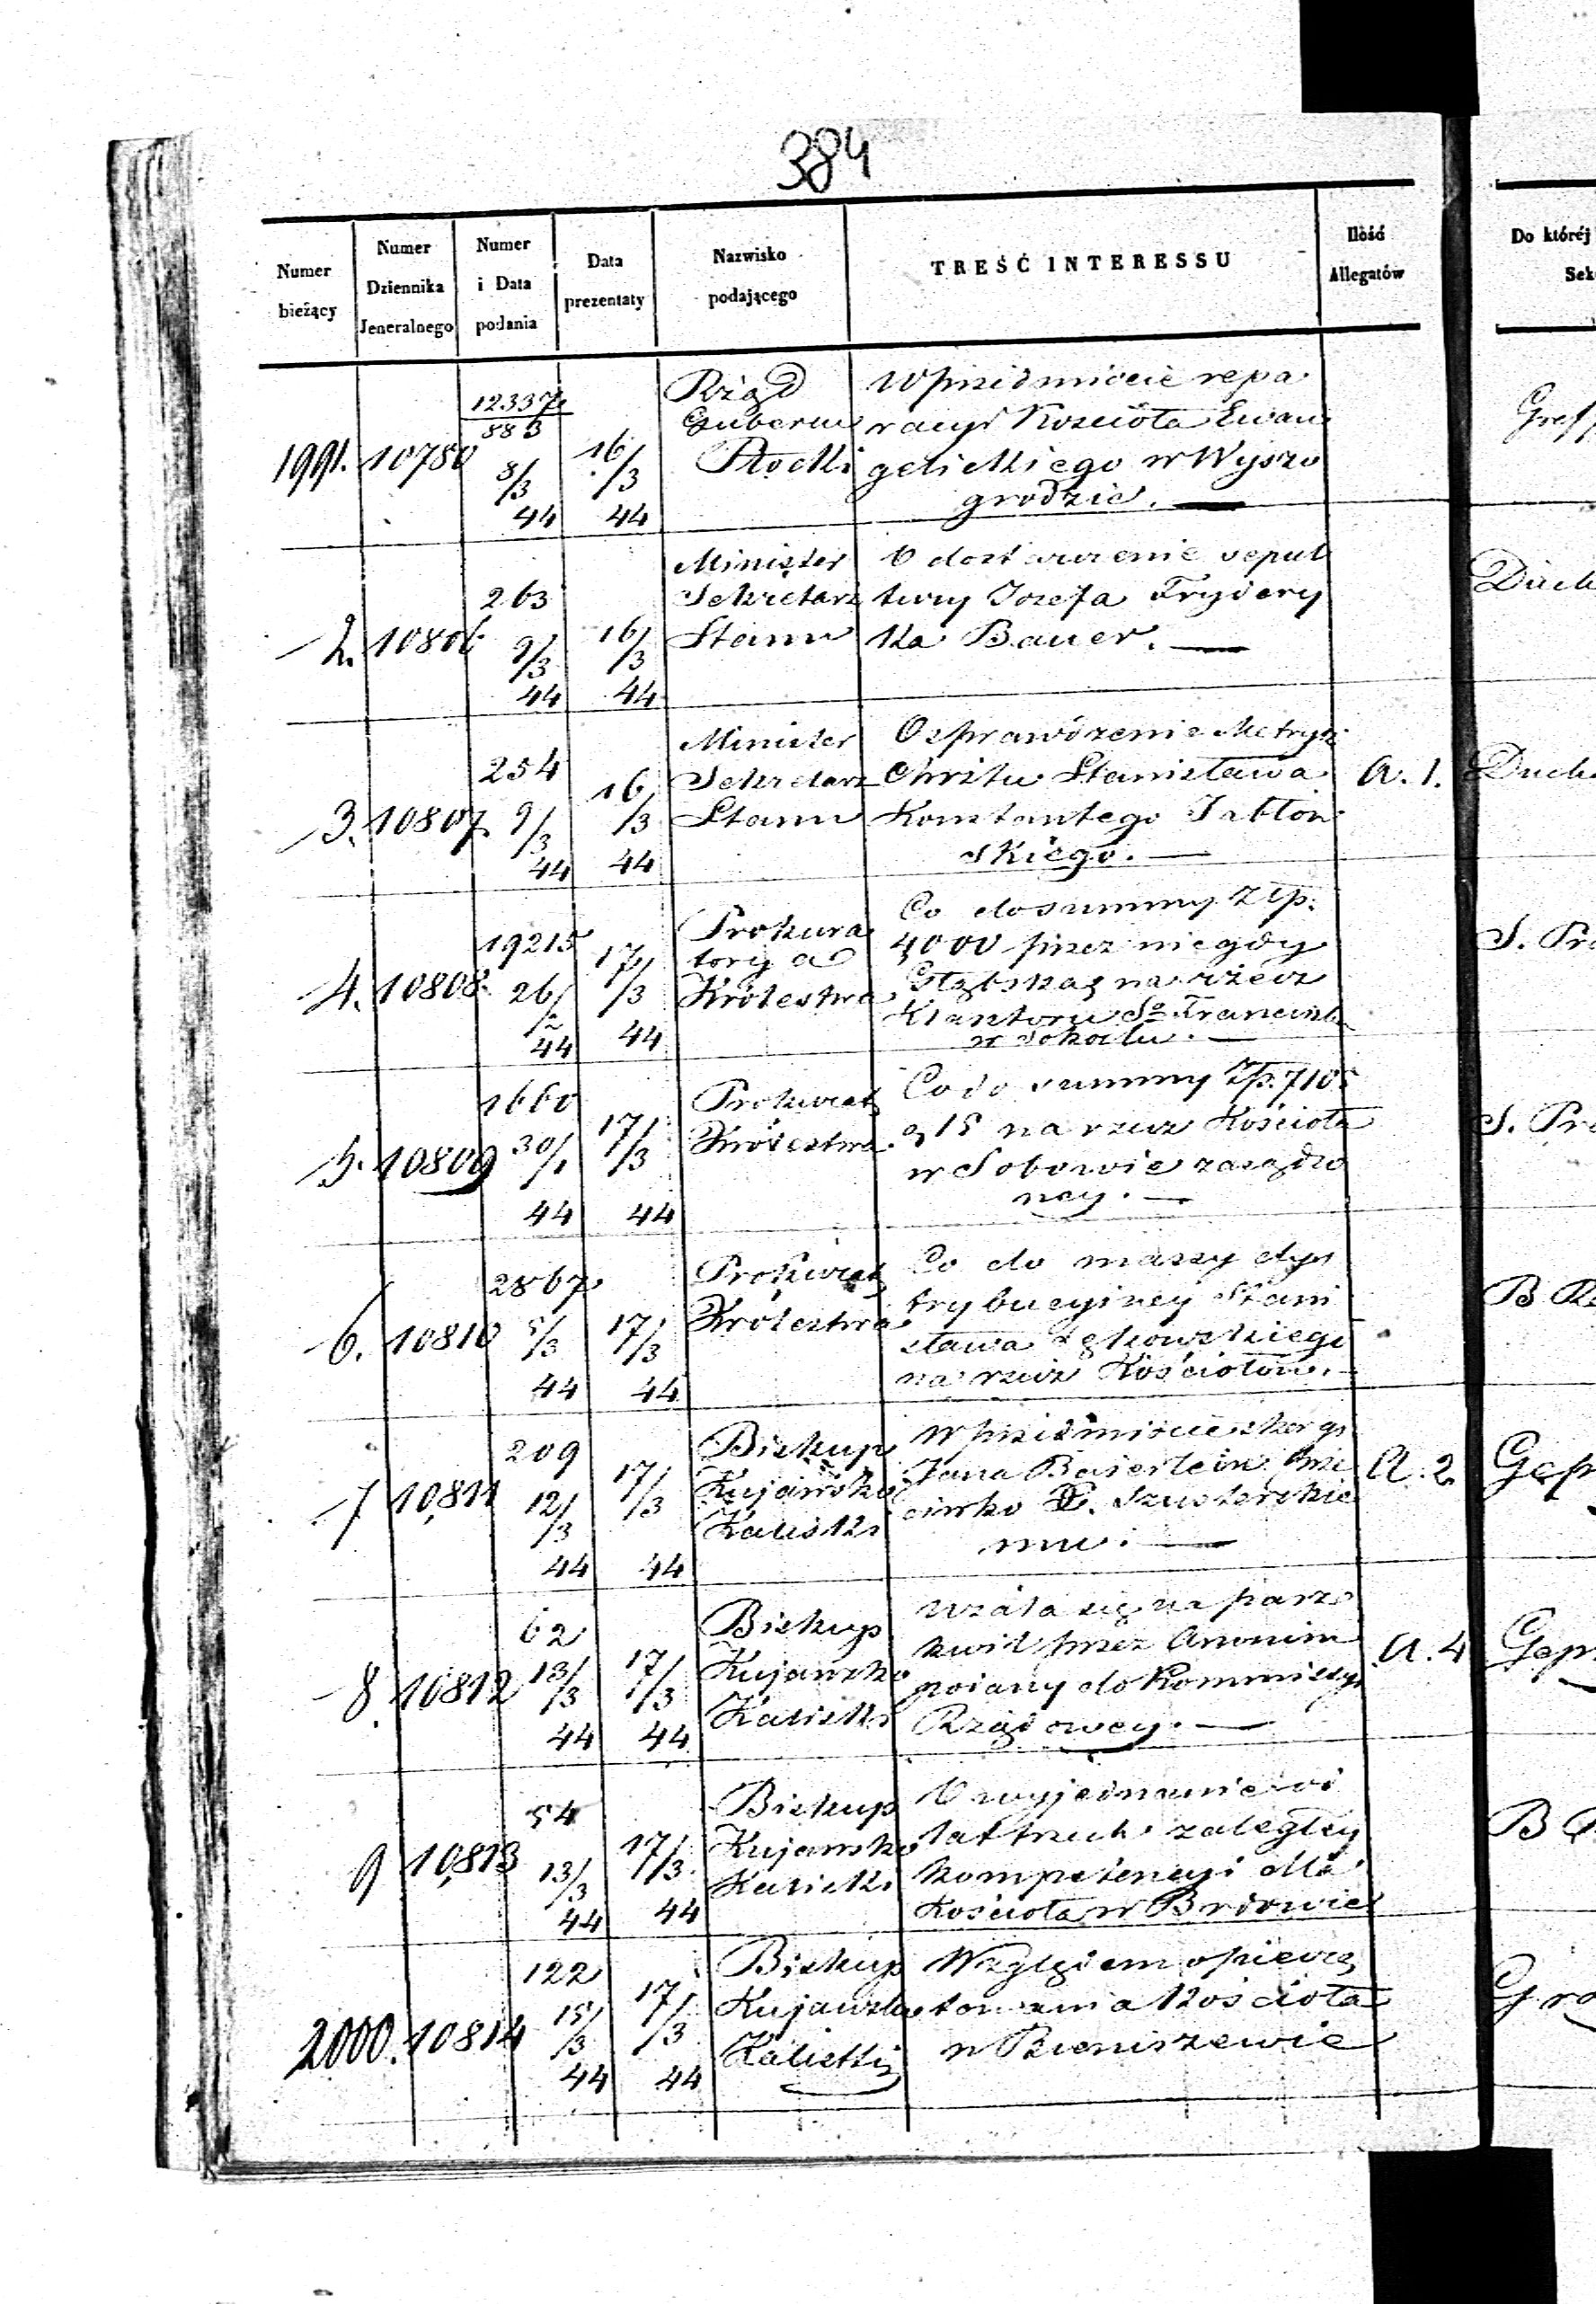 384
Numer bieżący
Numer Dziennika Jeneralnego
Numer i Data podania
Data prezentaty
Nazwisko podającego
TREŚĆ INTERESSU
Ilość Allegatów
Do któréj
Sek
1991. 10780 12337/883 8/3 44 16/3 44
Rząd
Gubern
Płocki
W przedmiocie repa
racyi Kościoła Ewan
gelickiego w Wyszo
grodzie. —
2. 10806 263 9/3 44 16/3 44
Minister
Sekretarz
Stanu
O dostarczenie sepul
tury Jozefa Fryдery
ka Bauer. —
Duch
3. 10807 254 9/3 44 16/3 44
Minister
Sekretarz
Stanu
O sprawdzenie Metryki
Chrztu Stanisława
Konstantego Jabłon
skiego. —
A. 1.
Duch
4. 10808 19215 26/2 44 17/3 44
Prokura
torya
Królestwa
Co do summy Złp.
4000 przez niegdy
na rzecz
Klasztoru So. Francisz
w Sokalu. —
S. Pra
5. 10809 1660 30/1 44 17/3 44
Prokurat
Królestwa
Co do summy Złp. 7105
g 15 na rzecz Kościoła
w Sobowie zasądzo
ney. —
S. Pra
6. 10810 2867 5/3 44 17/3 44
Prokurat
Królestwa
Co do massy dys
trybucyiney Stani
sława Łękowskiego
na rzecz Kościołow. —
7 10811 209 12/3 44 17/3 44
Biskup
Kujawsko
Kaliski
W przedmiocie skargi
Jana Baierlein prze
ciwko X. Szusterskie
mu. —
A. 2
8. 10812 62 13/3 44 17/3 44
Biskup
Kujawsko
Kaliski
Użala się na pasz
kwil przez Anonim
podany do Kommissyi
Rządowey. —
A. 4
9 10813 54 13/3 44 17/3 44
Biskup
Kujawsko
Kaliski
O wyjednanie od
lat trzech zaległey
kompetencyi dla
Kościoła w Brdowie
2000. 10814 122 15/3 44 17/3 44
Biskup
Kujawsko
Kaliski
Względem opieczę
towania Kościoła
w Bieniszewie